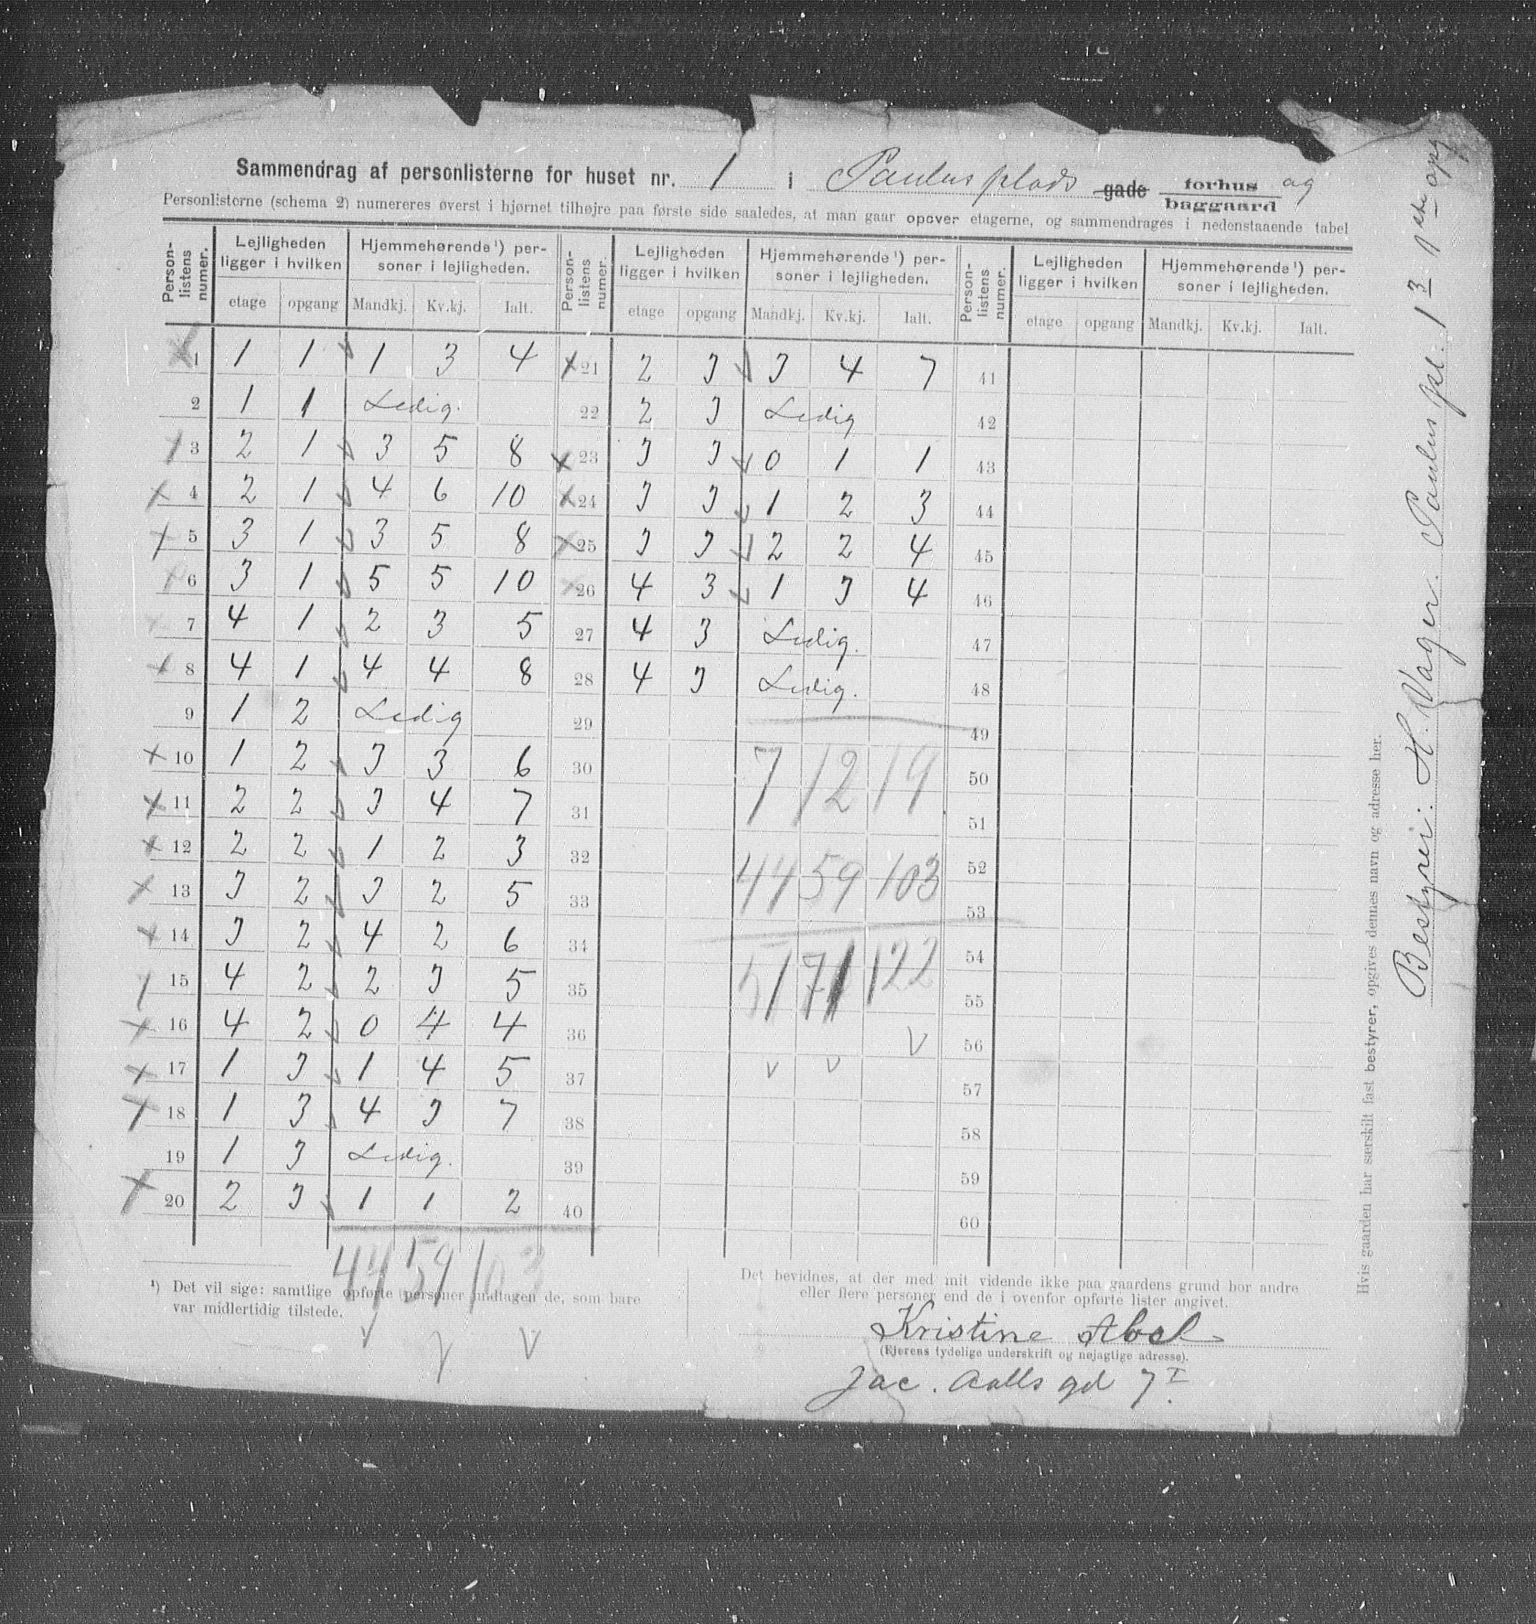 Sammendrag af personlisterne for huset nr. 1 i Paulus plads gade forhus og baggaard
Personlisterne (schema 2) numereres øverst i hjørnet tilhøjre paa første side saaledes, at man gaar opover etagerne, og sammendrages i nedenstaaende tabel
Person-listens numer. Lejligheden ligger i hvilken Hjemmehørende¹) personer i lejligheden.
etage opgang Mandkj. Kv.kj. Ialt.
1 1 1 1 3 4
2 1 1 Ledig.
3 2 1 3 5 8
4 2 1 4 6 10
5 3 1 3 5 8
6 3 1 5 5 10
7 4 1 2 3 5
8 4 1 4 4 8
9 1 2 Ledig
10 1 2 3 3 6
11 2 2 3 4 7
12 2 2 1 2 3
13 3 2 3 2 5
14 3 2 4 2 6
15 4 2 2 3 5
16 4 2 0 4 4
17 1 3 1 4 5
18 1 3 4 3 7
19 1 3 Ledig.
20 2 3 1 1 2
44 59 103
Person-listens numer. Lejligheden ligger i hvilken Hjemmehørende¹) personer i lejligheden.
etage opgang Mandkj. Kv.kj. Ialt.
21 2 3 3 4 7
22 2 3 Ledig
23 3 3 0 1 1
24 3 3 1 2 3
25 3 3 2 2 4
26 4 3 1 3 4
27 4 3 Ledig.
28 4 3 Ledig.
29
30 7 12 19
31
32
33 44 59 103
34
35 51 71 122
36
37
38
39
40
Person-listens numer. Lejligheden ligger i hvilken Hjemmehørende¹) personer i lejligheden.
etage opgang Mandkj. Kv.kj. Ialt.
41
42
43
44
45
46
47
48
49
50
51
52
53
54
55
56
57
58
59
60
¹) Det vil sige: samtlige opførte personer undtagen de, som bare
var midlertidig tilstede.
Det bevidnes, at der med mit vidende ikke paa gaardens grund bor andre
eller flere personer end de i ovenfor opførte lister angivet.
Kristine Abel
(Ejerens tydelige underskrift og nøjagtige adresse).
Jac. Aalls gd 7 I
Hvis gaarden har særskilt fast bestyrer, opgives dennes navn og adresse her.
Bestyrer: H. Vager. Paulus pl. 1 3 1ste opg